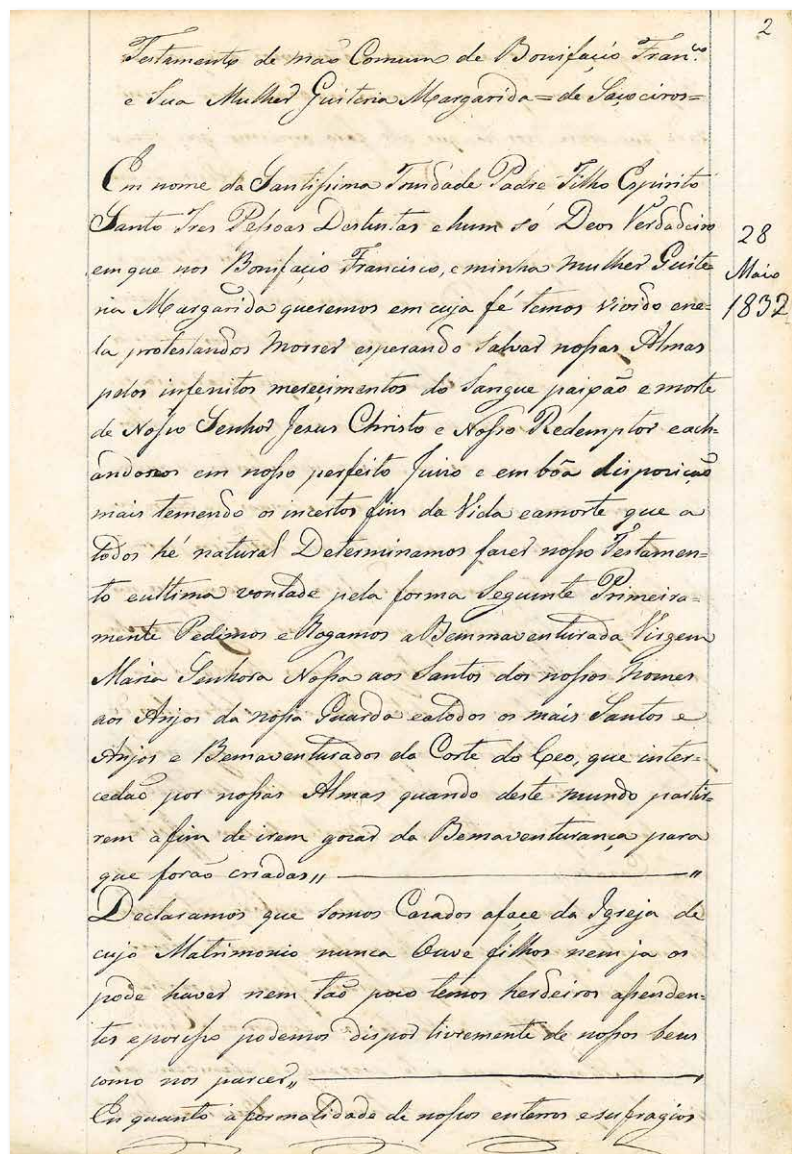 2
Testamento de mão Comum de Bonifacio Fran.co
e Sua Mulher Guiteria Margarida = de Saioeiros =
Em nome da Santissima Trindade Padre Filho Espirito
Santo Tres Pessoas Destintas e hum só Deos Verdadeiro
em que nos Bonifacio Francisco, e minha mulher Guite
ria Margarida queremos em cuja fé temos vivido ene=
la protestandos Morrer esperando Salvar nossas Almas
pelos infenitos merecimentos do Sangue paixão e morte
de Nosso Senhor Jezus Christo e Nosso Redemptor each=
andonos em nosso perfeito Juizo e em bôa disposicão
mais temendo os incertos fins da Vida eamorte que a
todos hé natural Determinamos fazer nosso Testamen=
to eultima vontade pela forma Seguinte Primeira=
mente Pedimos e Rogamos a Bemmaventurada Virgem
Maria Senhora Nossa aos Santos dos nossos Nomes
aos Anjos da nossa Guarda eatodos os mais Santos e
Anjos e Bemaventurados da Corte do Ceo, que inter=
cedão por nossas Almas quando deste mundo partir=
rem afim de irem gozar da Bemaventurança para
que forão criadas,, ——— "
Declaramos que Somos Cazados aface da Igreja de
cujo Matrimonio nunca Ouve filhos nem ja os
pode haver nem tão poco temos herdeiros assenden=
tes eporisso podemos dispor livremente de nossos bens
como nos parcer,, ———
En quanto a formalidade de nossos enterros esufragios
28
Maio
1832